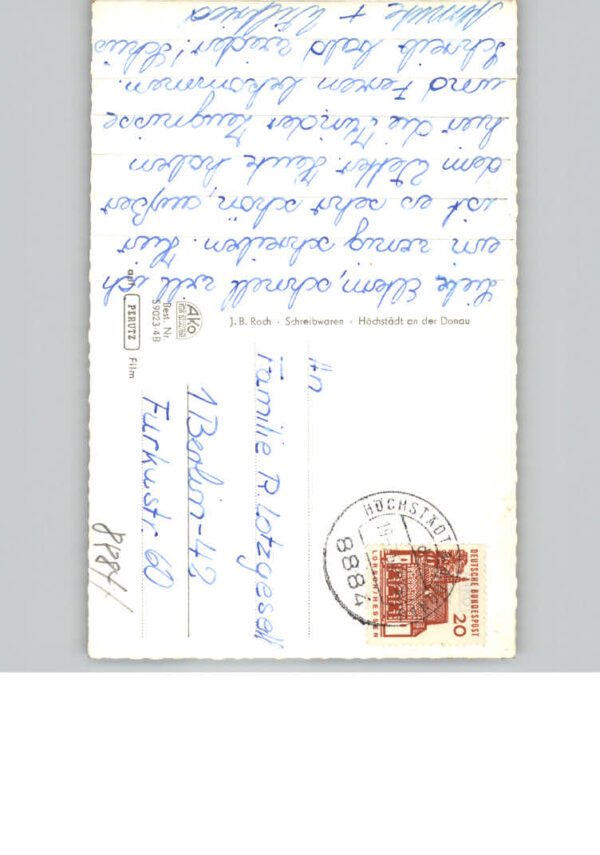 Liebe Eltern, schnell will ich
ein wenig schreiben. Hier
ist es sehr schön, außer
dem Wetter. Heute haben
hier die Kinder Zeugnisse
und Ferien bekommen.
Schreib bald wieder! Tschüs
+ Wilfried
J. B. Roch · Schreibwaren · Höchstädt an der Donau
AKo
Best. Nr.
59023-4B
auf PERUTZ Film
An
Familie R. Lotzgesell
1 Berlin-42
Furkastr. 60
8884/
HÖCHSTÄDT
8884
DEUTSCHE BUNDESPOST
20
LORSCH/HESSEN